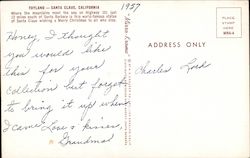 TOYLAND — SANTA CLAUS, CALIFORNIA
Where the mountains meet the sea on Highway 101 just
12 miles south of Santa Barbara is this world-famous statue
of Santa Claus wishing a Merry Christmas to all who stop.
1957
Honey, I thought
you would like
this for your
collection but forgot
to bring it up when
I came Love & kisses,
Grandma
PLACE
STAMP
HERE
ADDRESS ONLY
Charles Lord